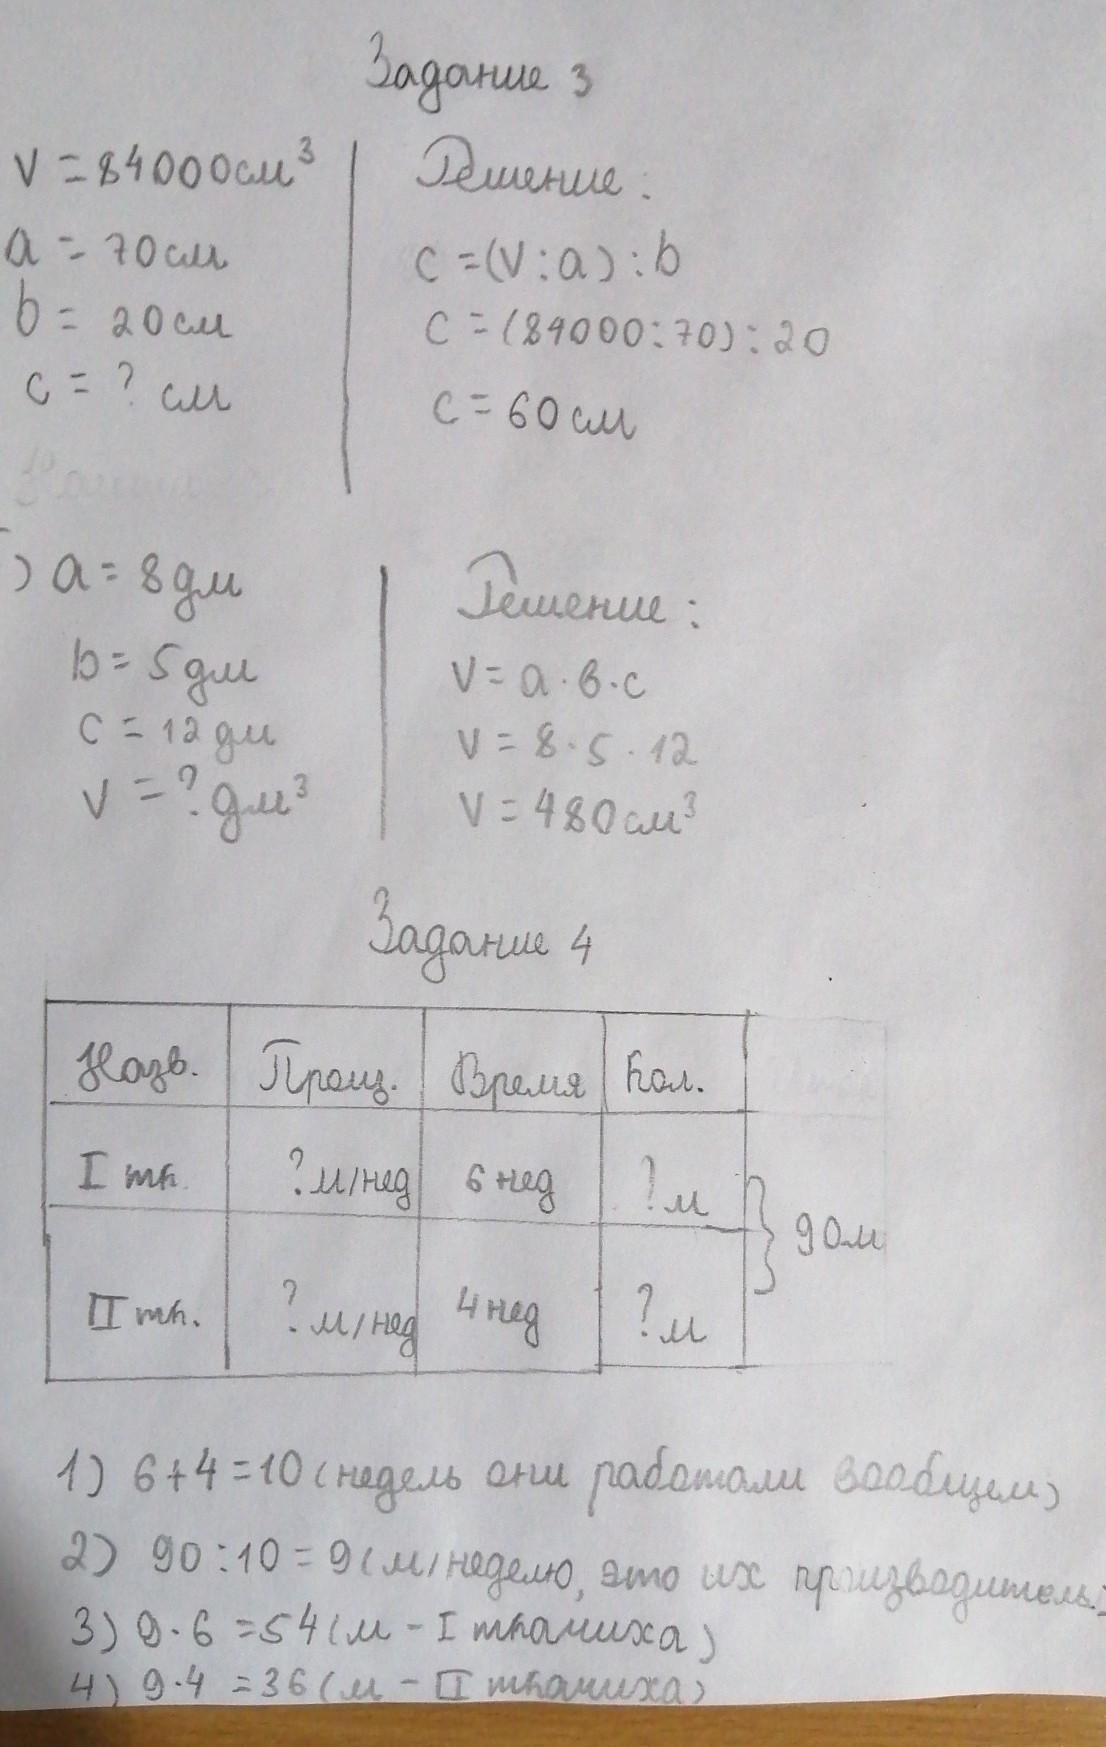 Задание 3
V = 84000см³
a = 70см
b = 20см
c = ? см
Решение:
c = (V : a) : b
c = (84000 : 70) : 20
c = 60см
) a = 8дм
b = 5дм
c = 12дм
V = ? дм³
Решение:
V = a · в · c
V = 8 · 5 · 12
V = 480см³
Задание 4
Назв. Произ. Время Кол.
I тк. ? м/нед 6 нед ? м
90м
II тк. ? м/нед 4 нед ? м
1) 6 + 4 = 10 (недель они работали вообщем)
2) 90 : 10 = 9 (м/неделю, это их производитель.
3) 9 · 6 = 54 (м - I ткачиха)
4) 9 · 4 = 36 (м - II ткачиха)